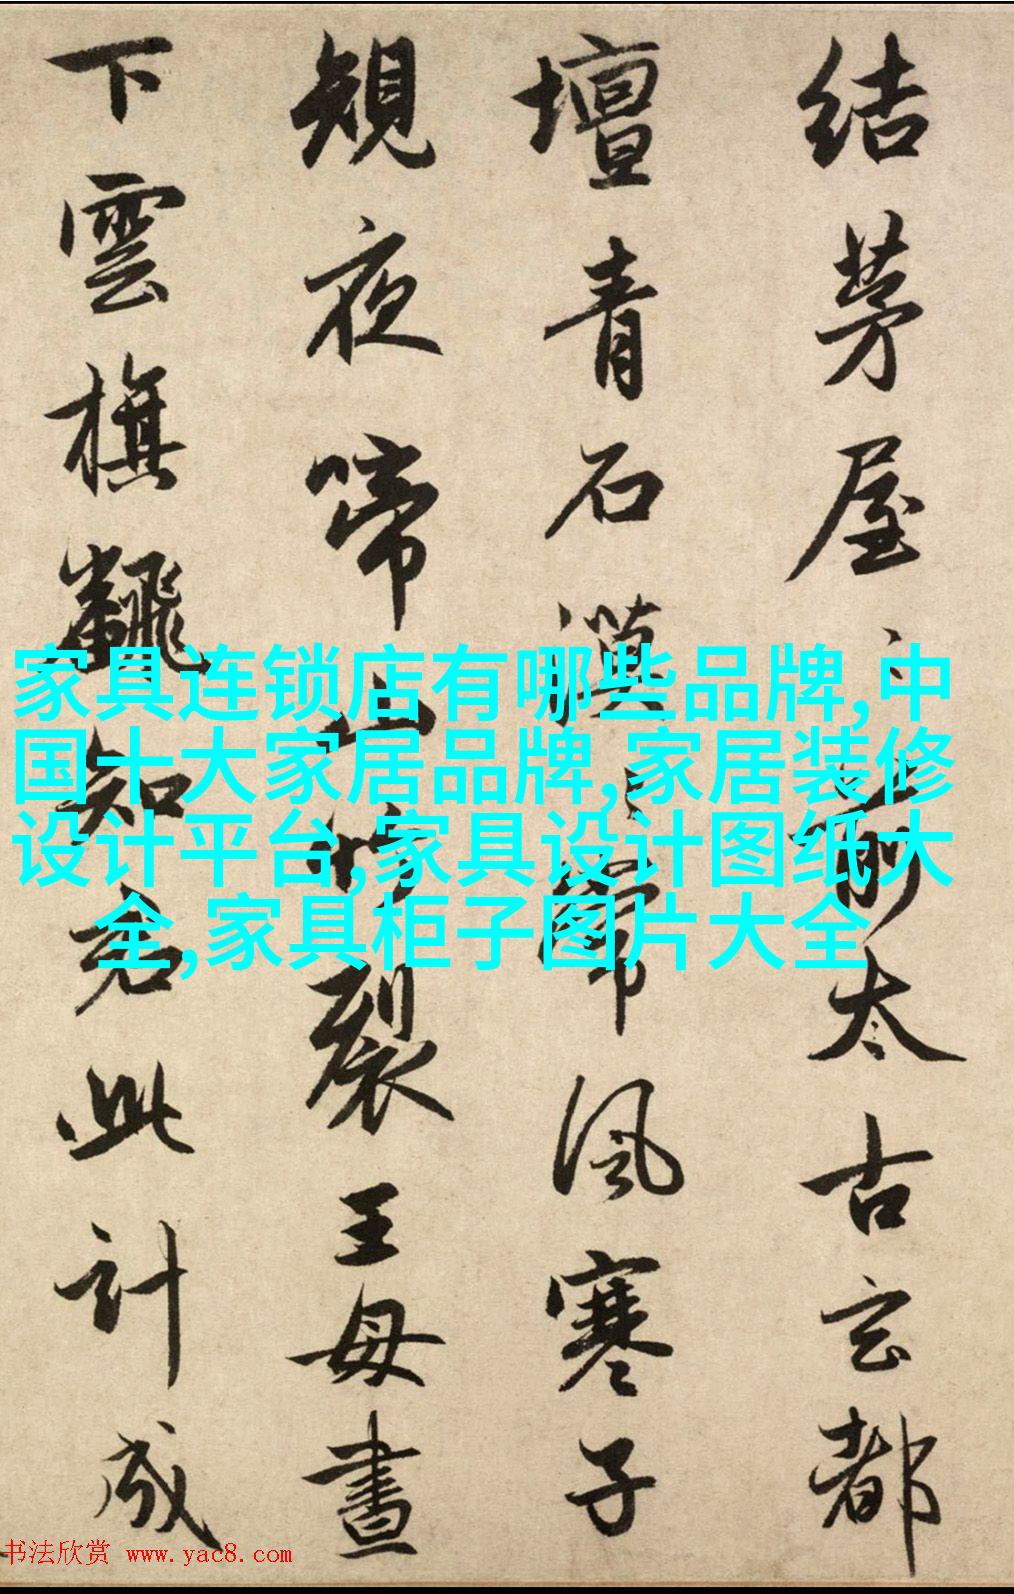 結茅屋々前太古玄都
壇青石漠々常風寒子
規夜啼山竹裂王母晝
下雲旗飜知君此計成
家具连锁店有哪些品牌,中
国十大家居品牌,家居装修
设计平台,家具设计图纸大
全,家具柜子图片大全
书法欣赏 www.yac8.com